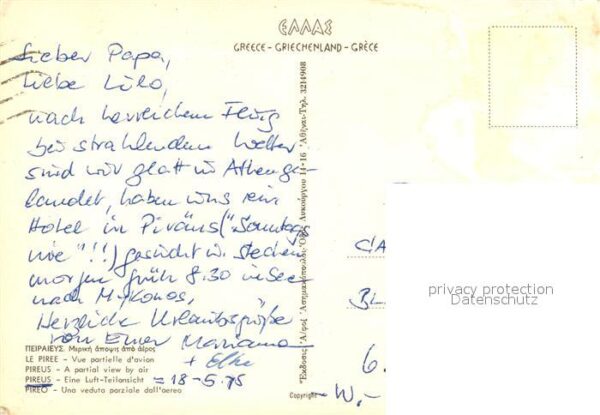 ΕΛΛΑΣ
GREECE - GRIECHENLAND - GRÈCE
Lieber Papa,
liebe Lilo,
nach herrlichem Flug
bei strahlendem Wetter
sind wir glatt in Athen ge-
landet, haben uns ein
Hotel in Piräus ("Sonntags
nie"!!) gesucht u. stechen
morgen früh 8.30 in See
nach Mykonos.
Herzliche Urlaubsgrüße
von Eurer Marianne
+ Elke
ΠΕΙΡΑΙΕΥΣ. Μερική άποψις από αέρος
LE PIREE - Vue partielle d'avion
PIREUS - A partial view by air
PIREUS - Eine Luft-Teilansicht = 18-5.75
PIREO - Una veduta parziale dall'aereo
Λυκούργου 14-16 Ἀθῆναι-Τηλ. 3214908
Copyright
CA
BL
6.
- W.-
privacy protection
Datenschutz